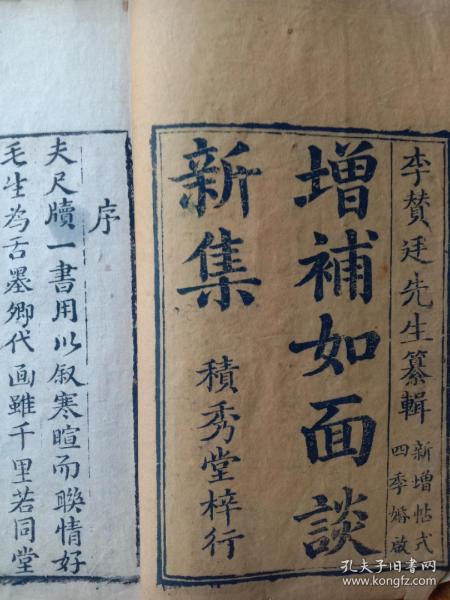 李賛廷先生纂輯
新增帖式
四季婚啟
增補如面談
新集
積秀堂梓行
序
夫尺牘一書用以叙寒暄而聯情好
毛生為舌墨卿代面雖千里若同堂
孔夫子旧书网
www.kongfz.com